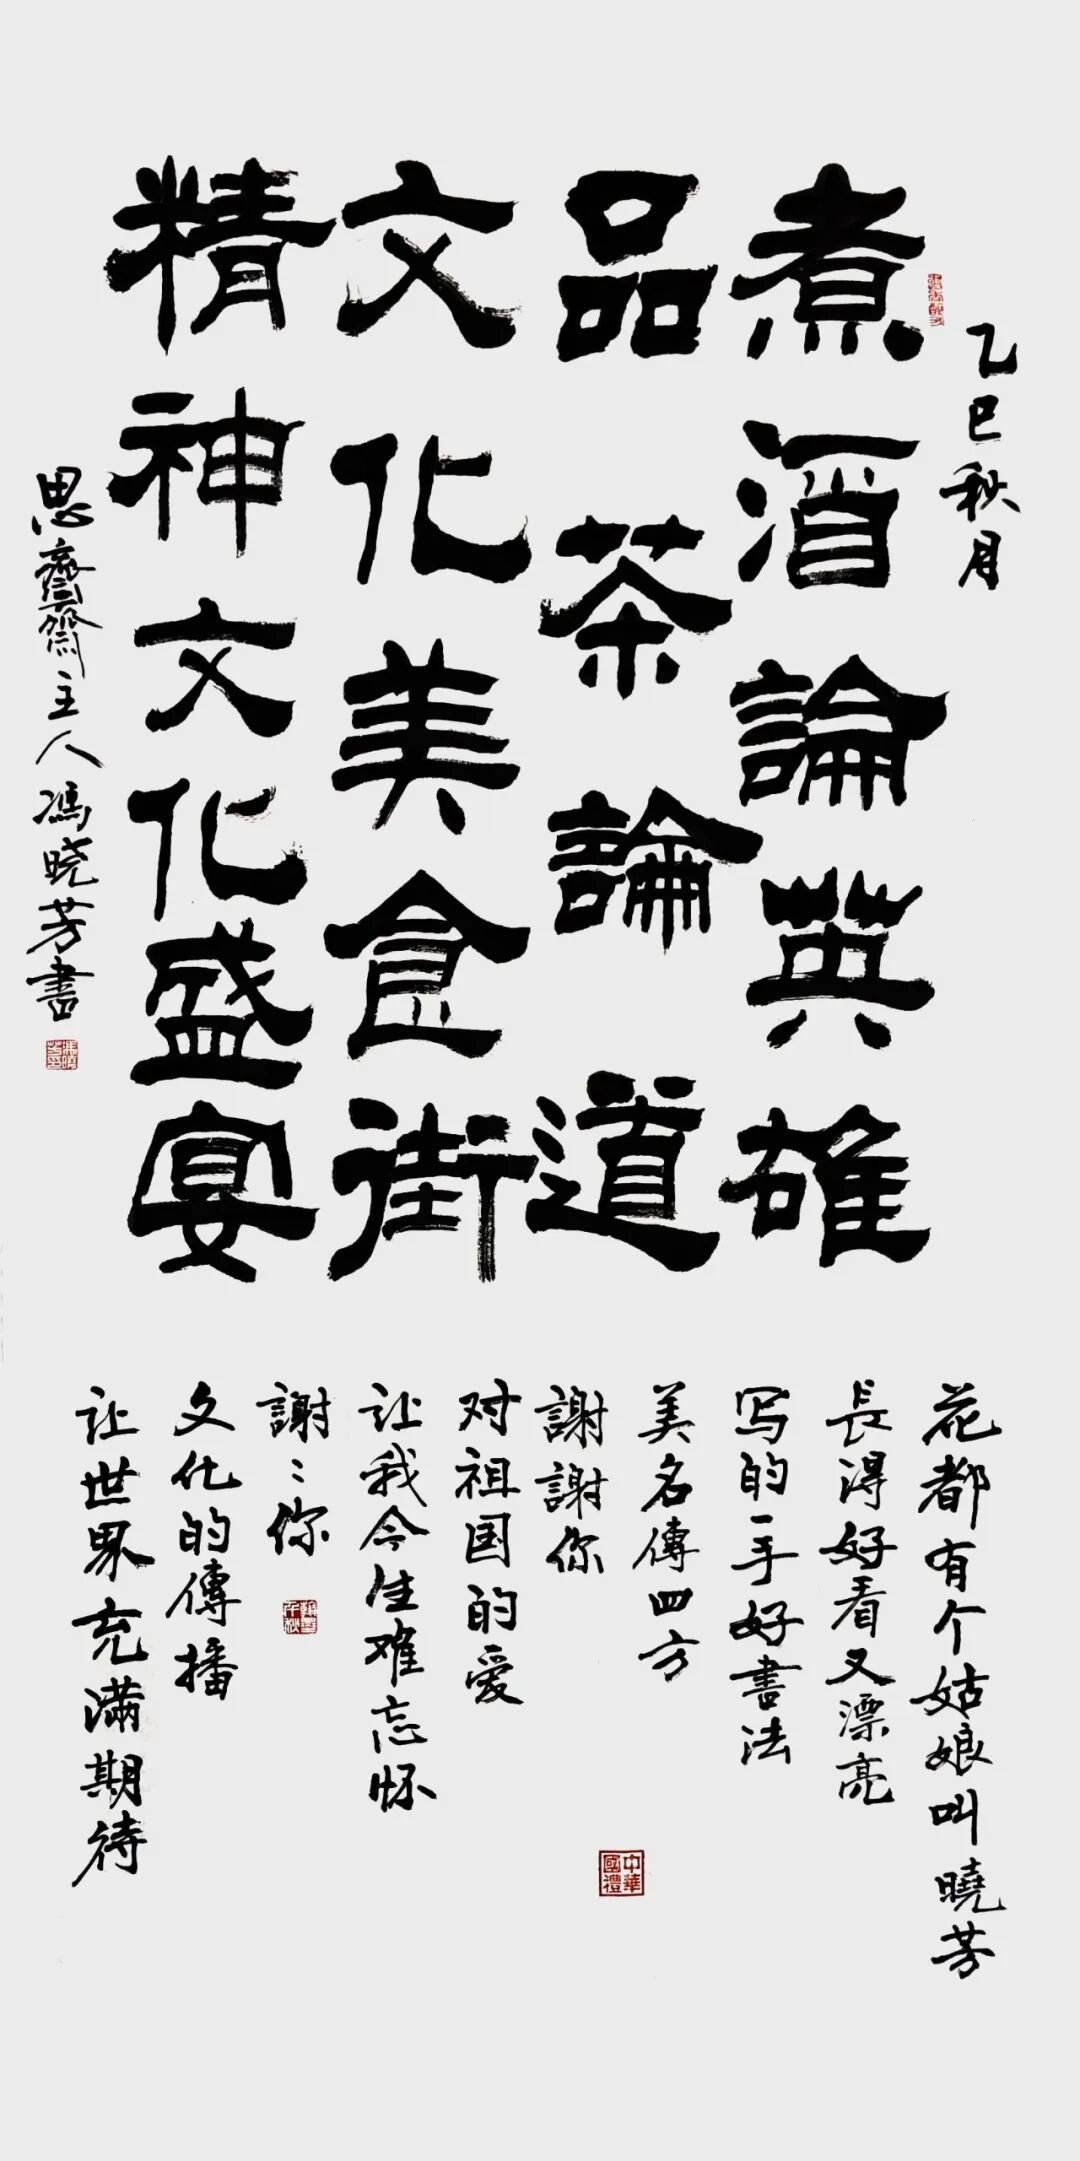 乙巳秋月
煮酒論英雄
品茶論道
文化美食街
精神文化盛宴
思齊齋主人馮晓芳書
花都有个姑娘叫曉芳
長得好看又漂亮
写的一手好書法
美名傳四方
謝謝你
对祖国的愛
让我今生难忘怀
謝〻你
文化的傳播
让世界充满期待
中華國禮